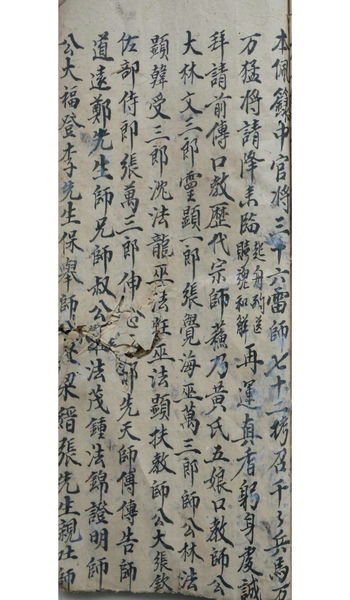 本佩籙中官將三十六雷師七十二㧒召千千兵馬万
万猛将請降来臨起舟約送賍魂和解再運真香躬身虔誠
拜請前傳口教歷代宗師蔫乃黄氏五娘口教師公
大林文三郎靈顯一郎張覺海巫萬三郎師公林法
顯韓受三郎沈法龍巫法旺巫法顯扶教師公大張欽
佐部侍郎張萬三郎伸郎先天師傅傳告師
道遠鄭先生師兄師叔公法茂鍾法錦證明師
公大福登李先生保舉師梁縉張先生親仕師